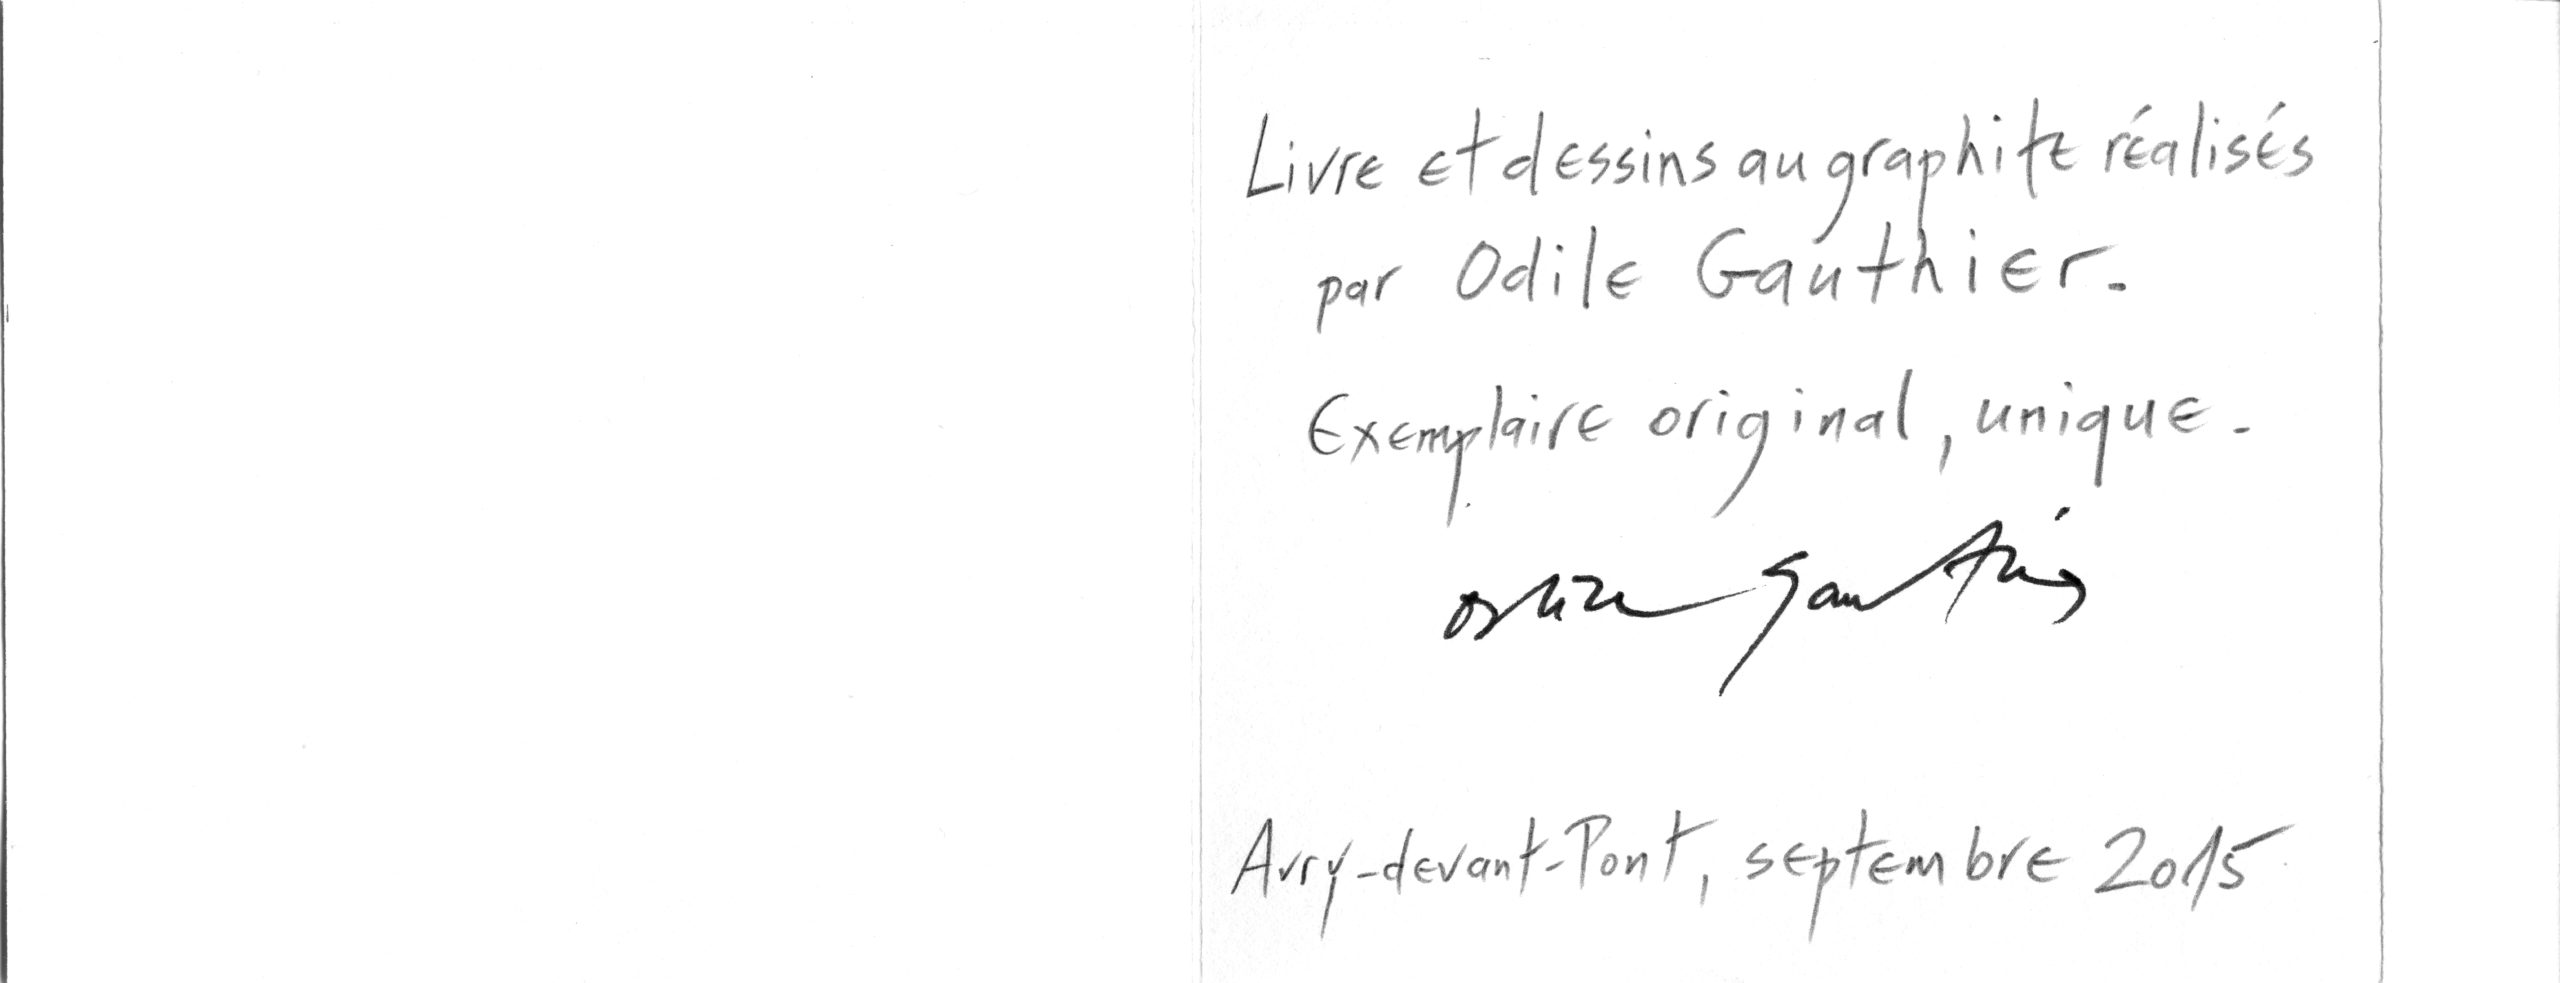 Livre et dessins au graphite réalisés
par Odile Gauthier.
Exemplaire original, unique.
Odile Gauthier
Avry-devant-Pont, septembre 2015